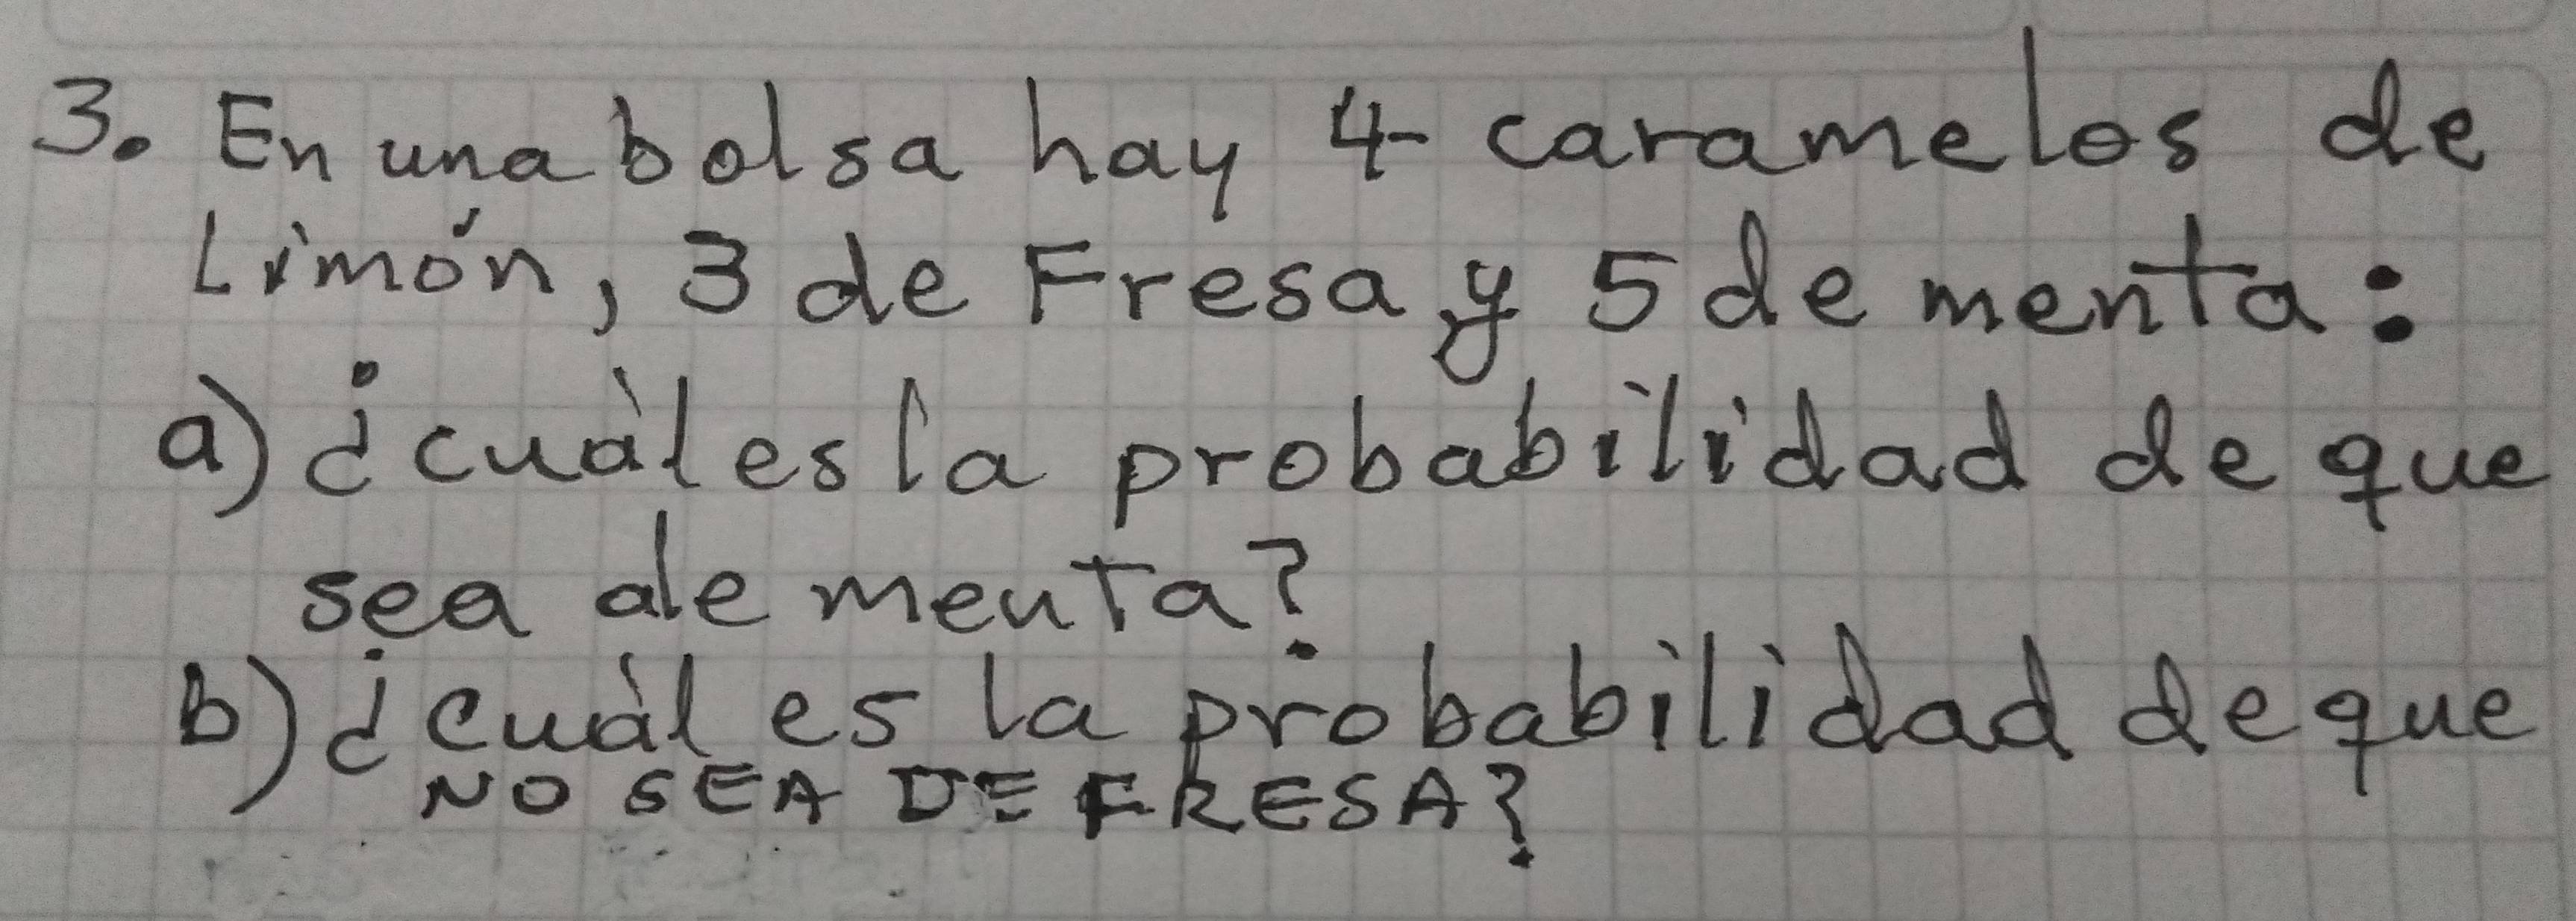 3. En una bolsa hay 4 caramelos de
Limón, 3 de Fresa y 5 de menta:
a) ¿cuàl es la probabilidad de que
sea de menta?
b) ¿cuàl es la probabilidad de que
NO SEA DE FRESA?